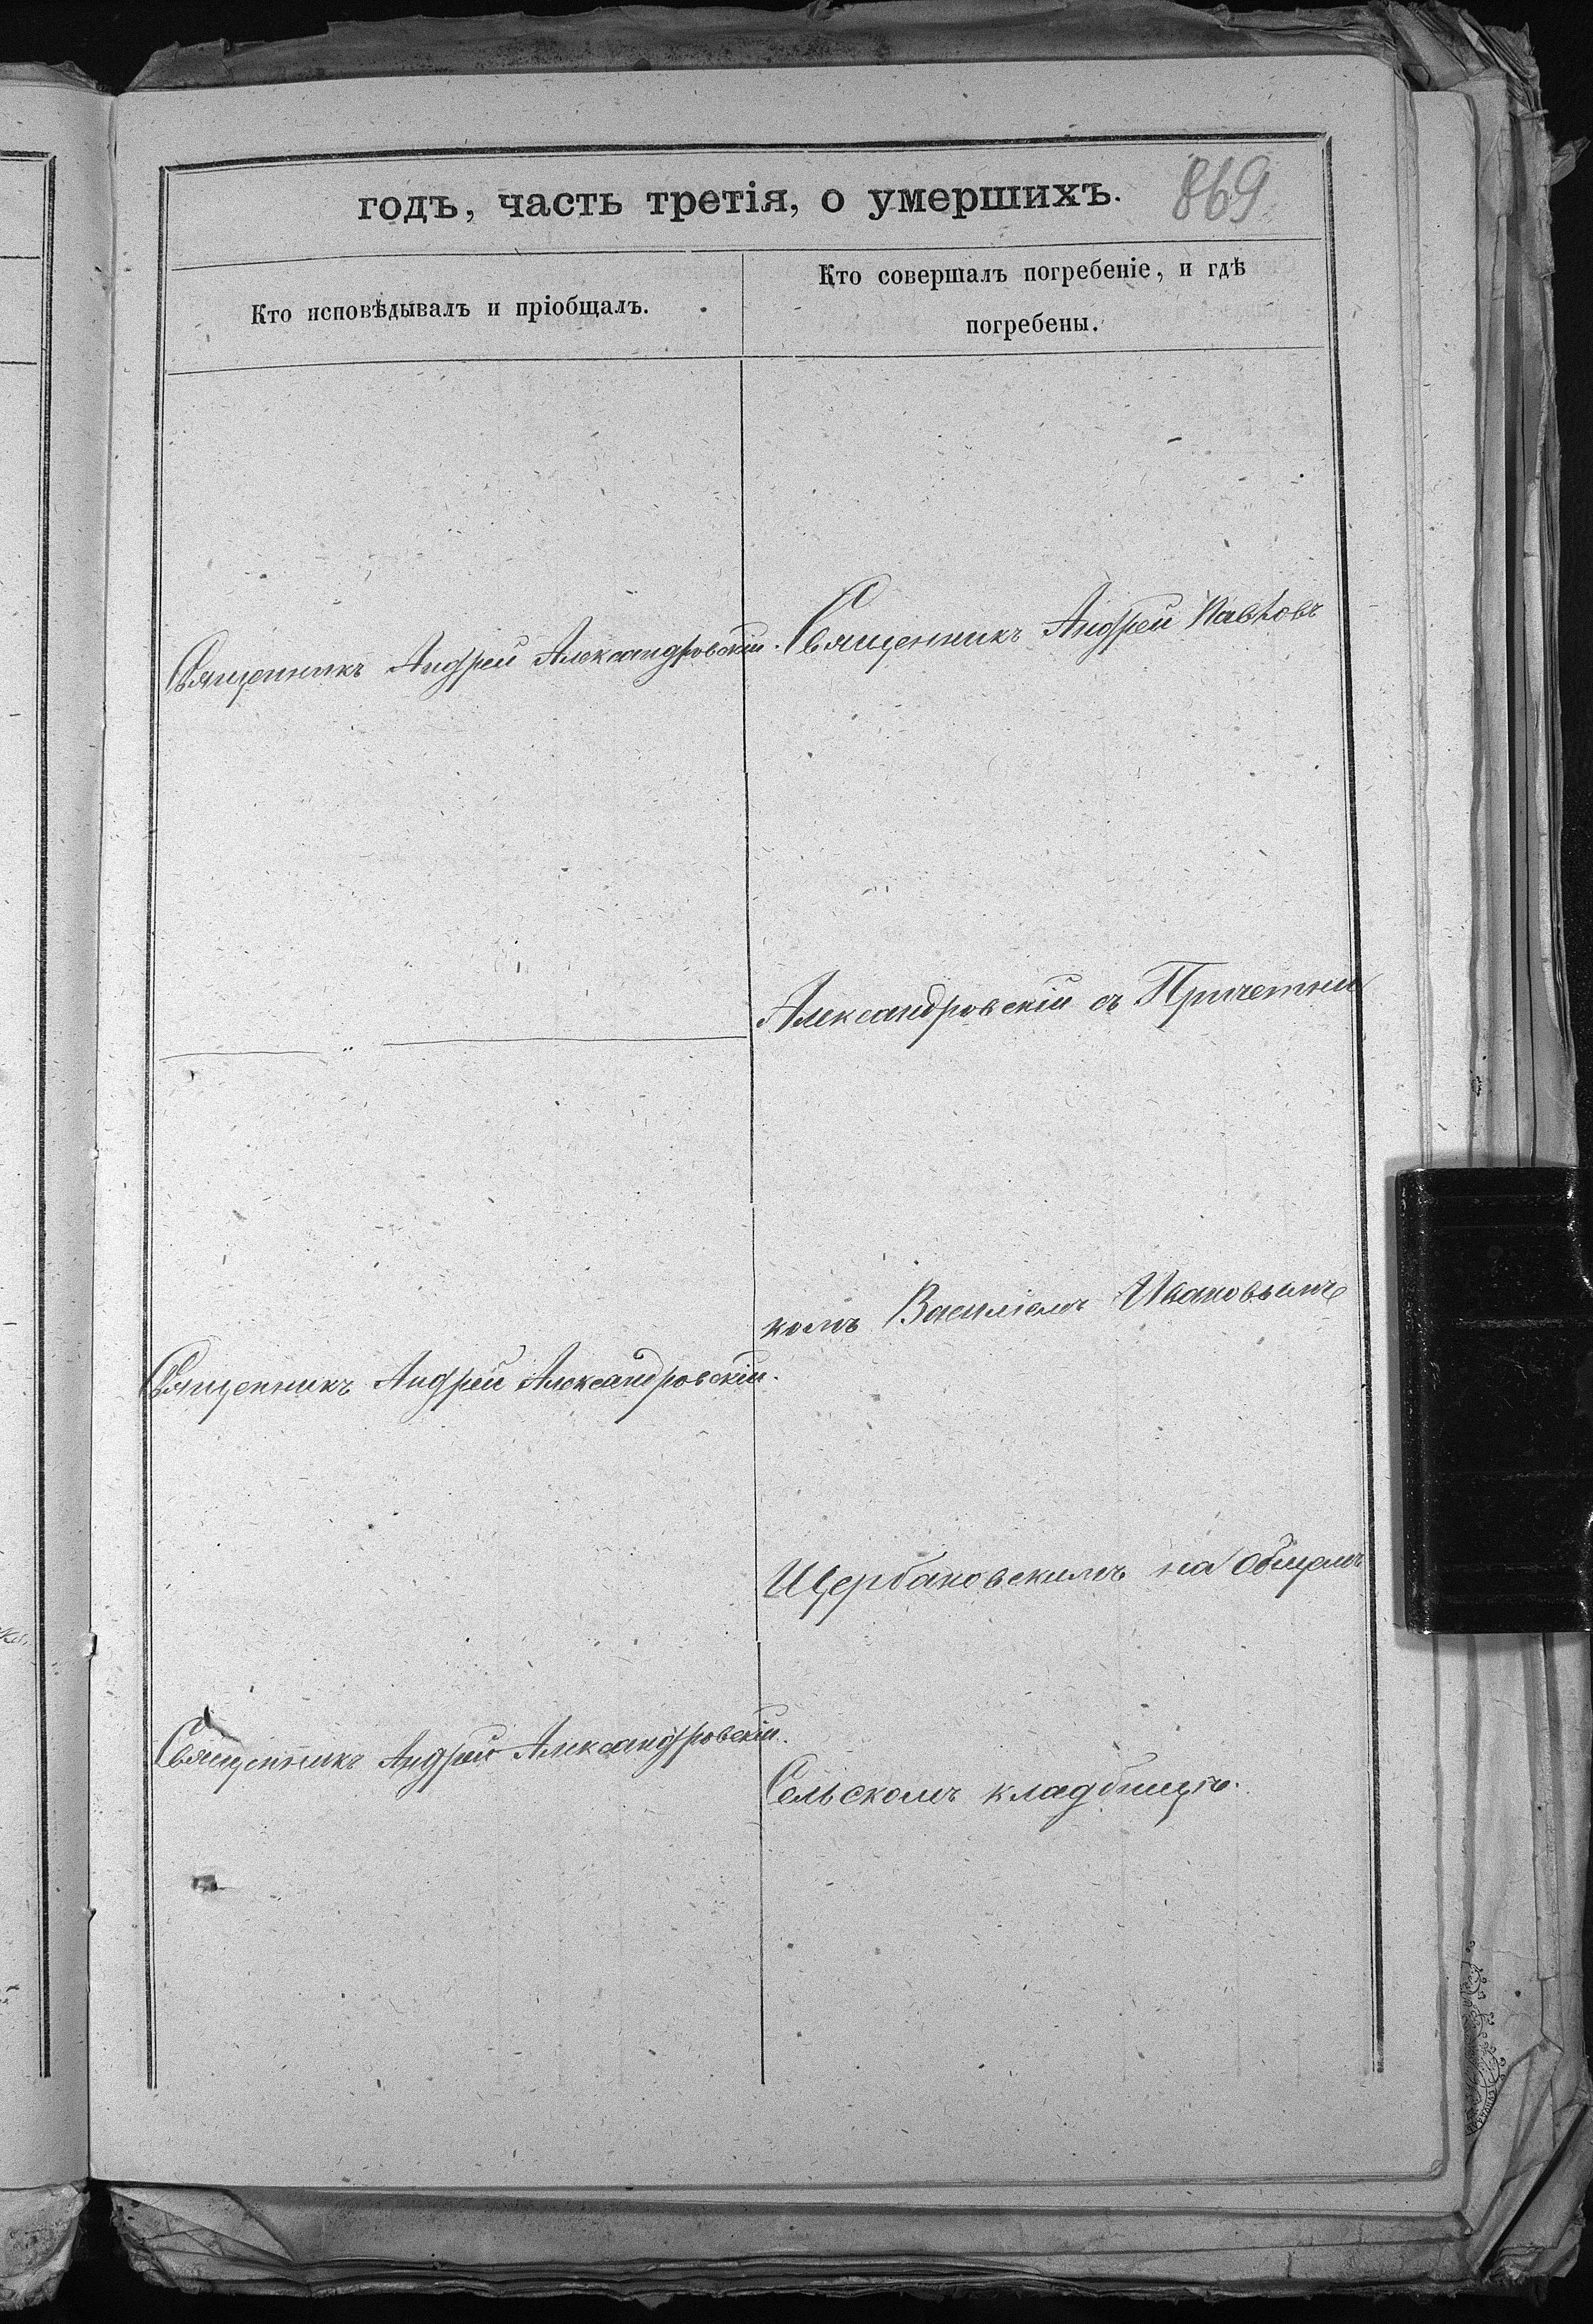 годъ, часть третія, о умершихъ. 869
Кто исповѣдывалъ и пріобщалъ.
Кто совершалъ погребеніе, и гдѣ
погребены.
Священникъ Андрей Александровскій.
Священникъ Андрей Павловъ
Александровскій съ Причетни
комъ Василіемъ Ивановымъ
Священникъ Андрей Александровскій.
Щербаковскимъ на общемъ
Священникъ Андрей Александровскій.
Сельскомъ кладбищѣ.